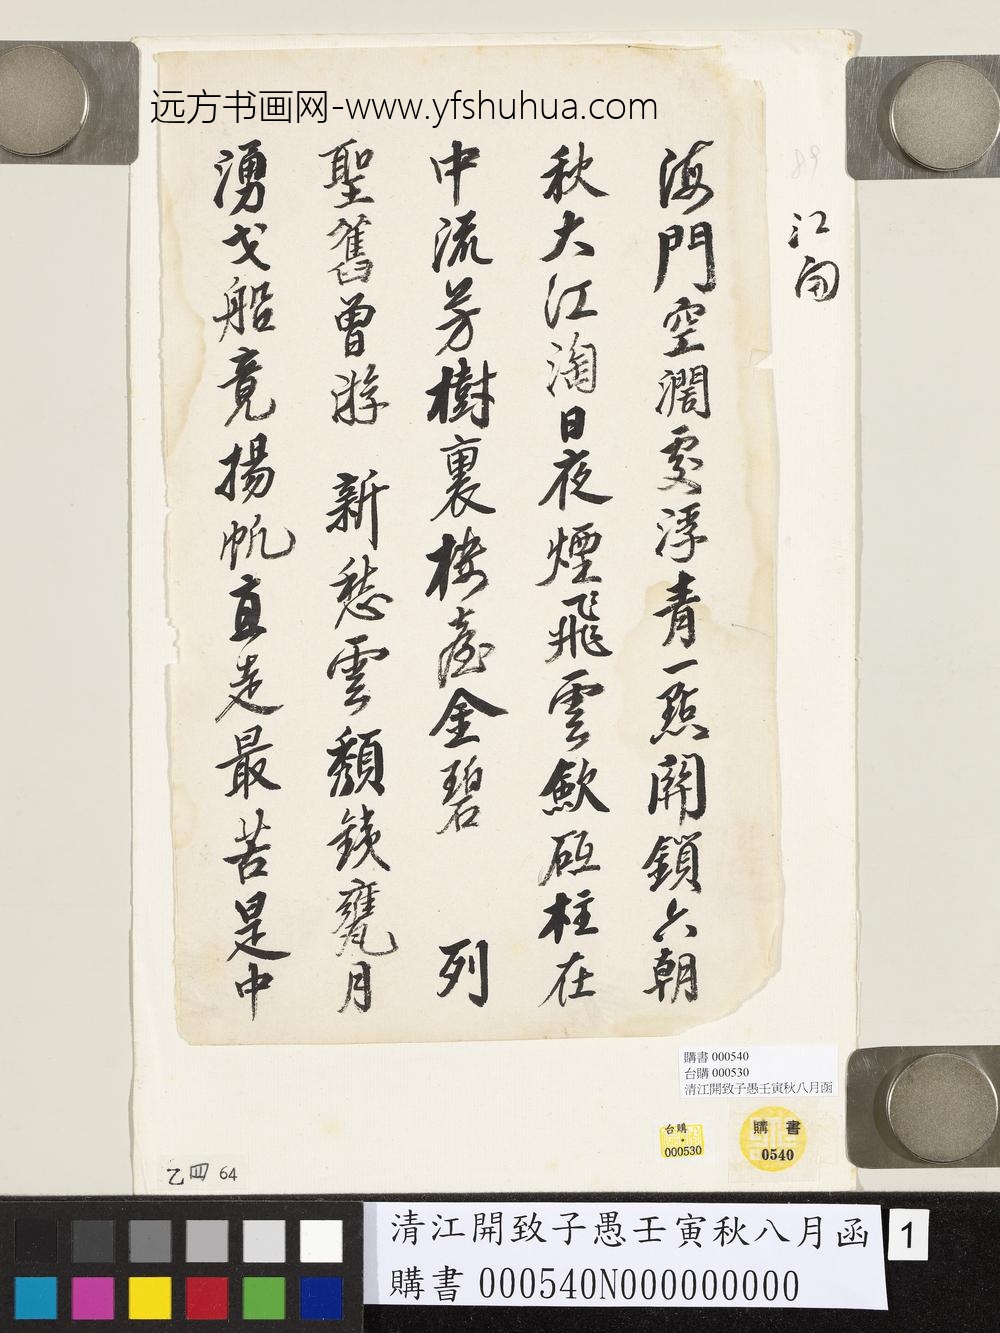 远方书画网-www.yfshuhua.com
海門空濶處浮青一點開鎖六朝
秋大江淘日夜煙飛雲歛砥柱在
中流芳樹裏楼臺金碧 列
聖舊曾游 新愁雲頹鐵甕月
湧戈船竟揚帆直走最苦是中
89
江開
購書 000540
台購 000530
清江開致子愚壬寅秋八月函
台購
000530
購書
0540
乙 四 64
清江開致子愚壬寅秋八月函
購書 000540N000000000
1